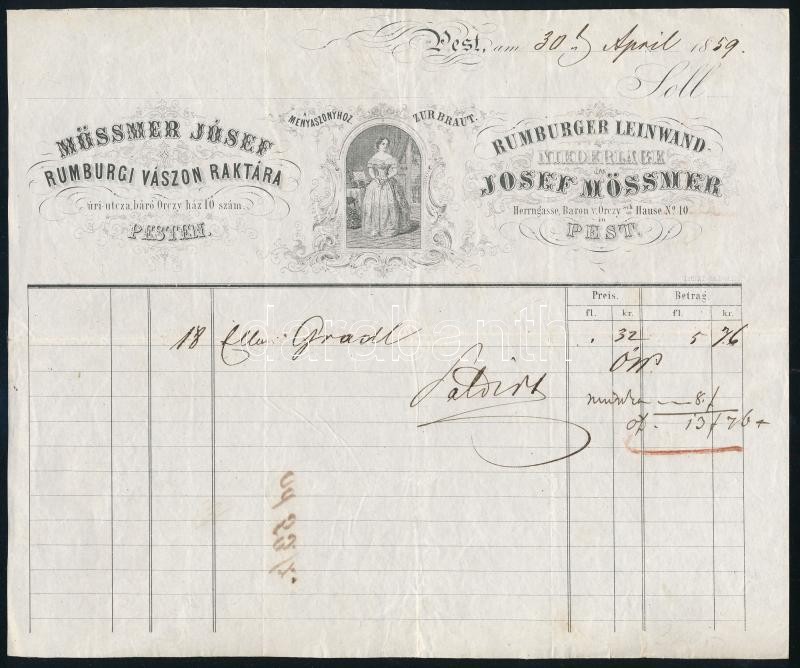 Pest, am 30t April 1859.
Soll
MÖSSMER JÓSEF
RUMBURGI VÁSZON RAKTÁRA
úri-utcza, báró Orczy ház 10 szám.
PESTEN.
MENYASZONYHOZ. ZUR BRAUT.
RUMBURGER LEINWAND-
NIEDERLAGE
JOSEF MÖSSMER
Herrngasse, Baron v. Orczy Hause No 10
in
PEST.
Preis. Betrag
fl. kr. fl. kr.
18 Ellen Gradl . 32 5 76
Saldirt
8
13 76
darabanth